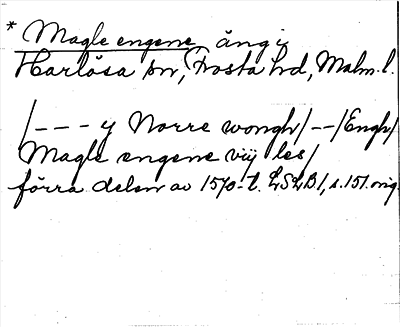 * Magle engene, äng i
Harlösa sn, Frosta hd, Malm. l.
/--- y Norre wongh/--/Engh/
Magle engene vij les/
förra delen av 1570-t. LSLB1, s. 151. orig.